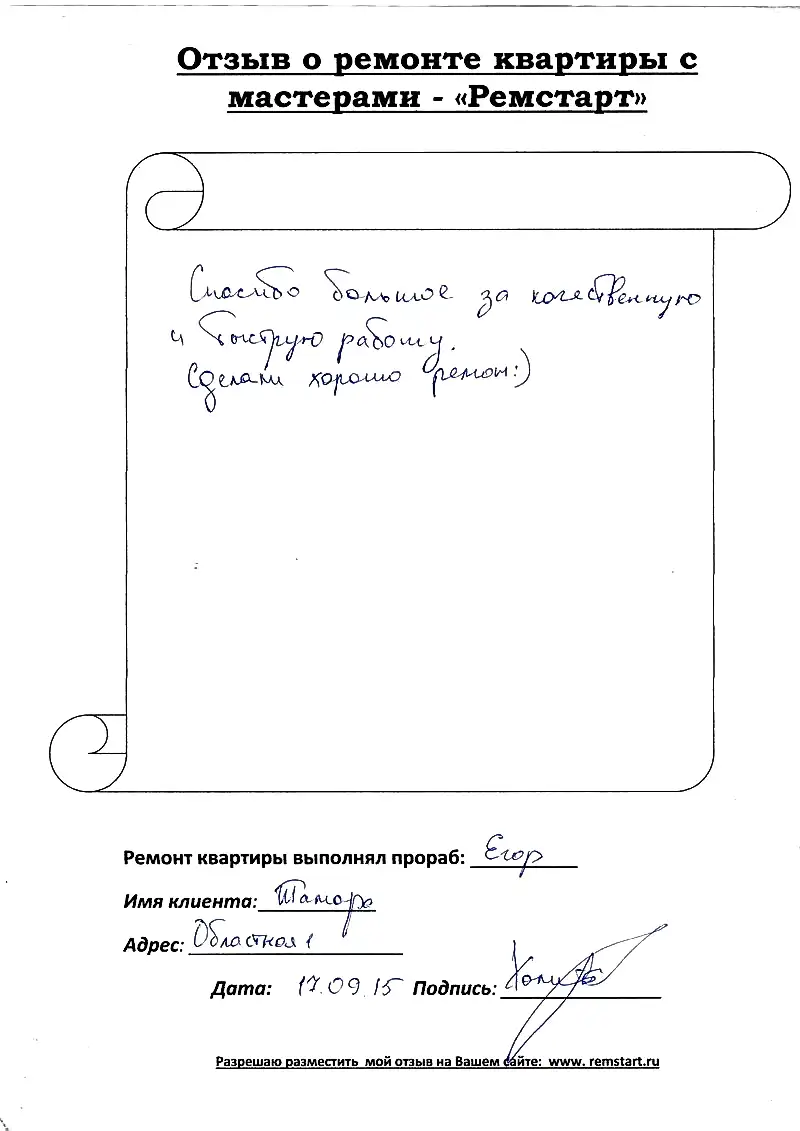 Отзыв о ремонте квартиры с
мастерами - «Ремстарт»
Спасибо большое за качественную
и быструю работу.
Сделали хорошо ремон:)
Ремонт квартиры выполнял прораб: Егор
Имя клиента: Тамара
Адрес: Областная 1
Дата: 17.09.15 Подпись:
Разрешаю разместить мой отзыв на Вашем сайте: www. remstart.ru